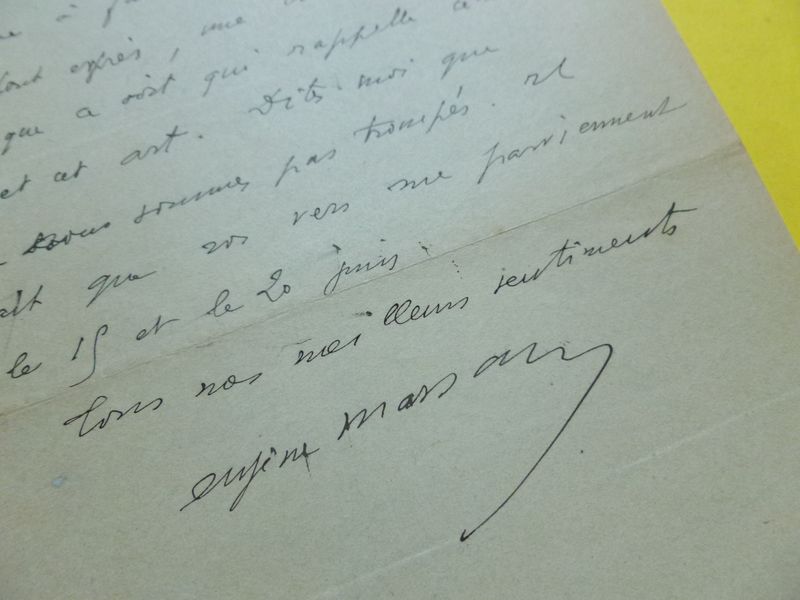 à
exprès, une
que a qui rappelle
et cet art. Dites moi que
nous sommes pas trompés. Il
que vos vers me parviennent
le 15 et le 20 juin.
Tous nos meilleurs sentiments
eugène marsan